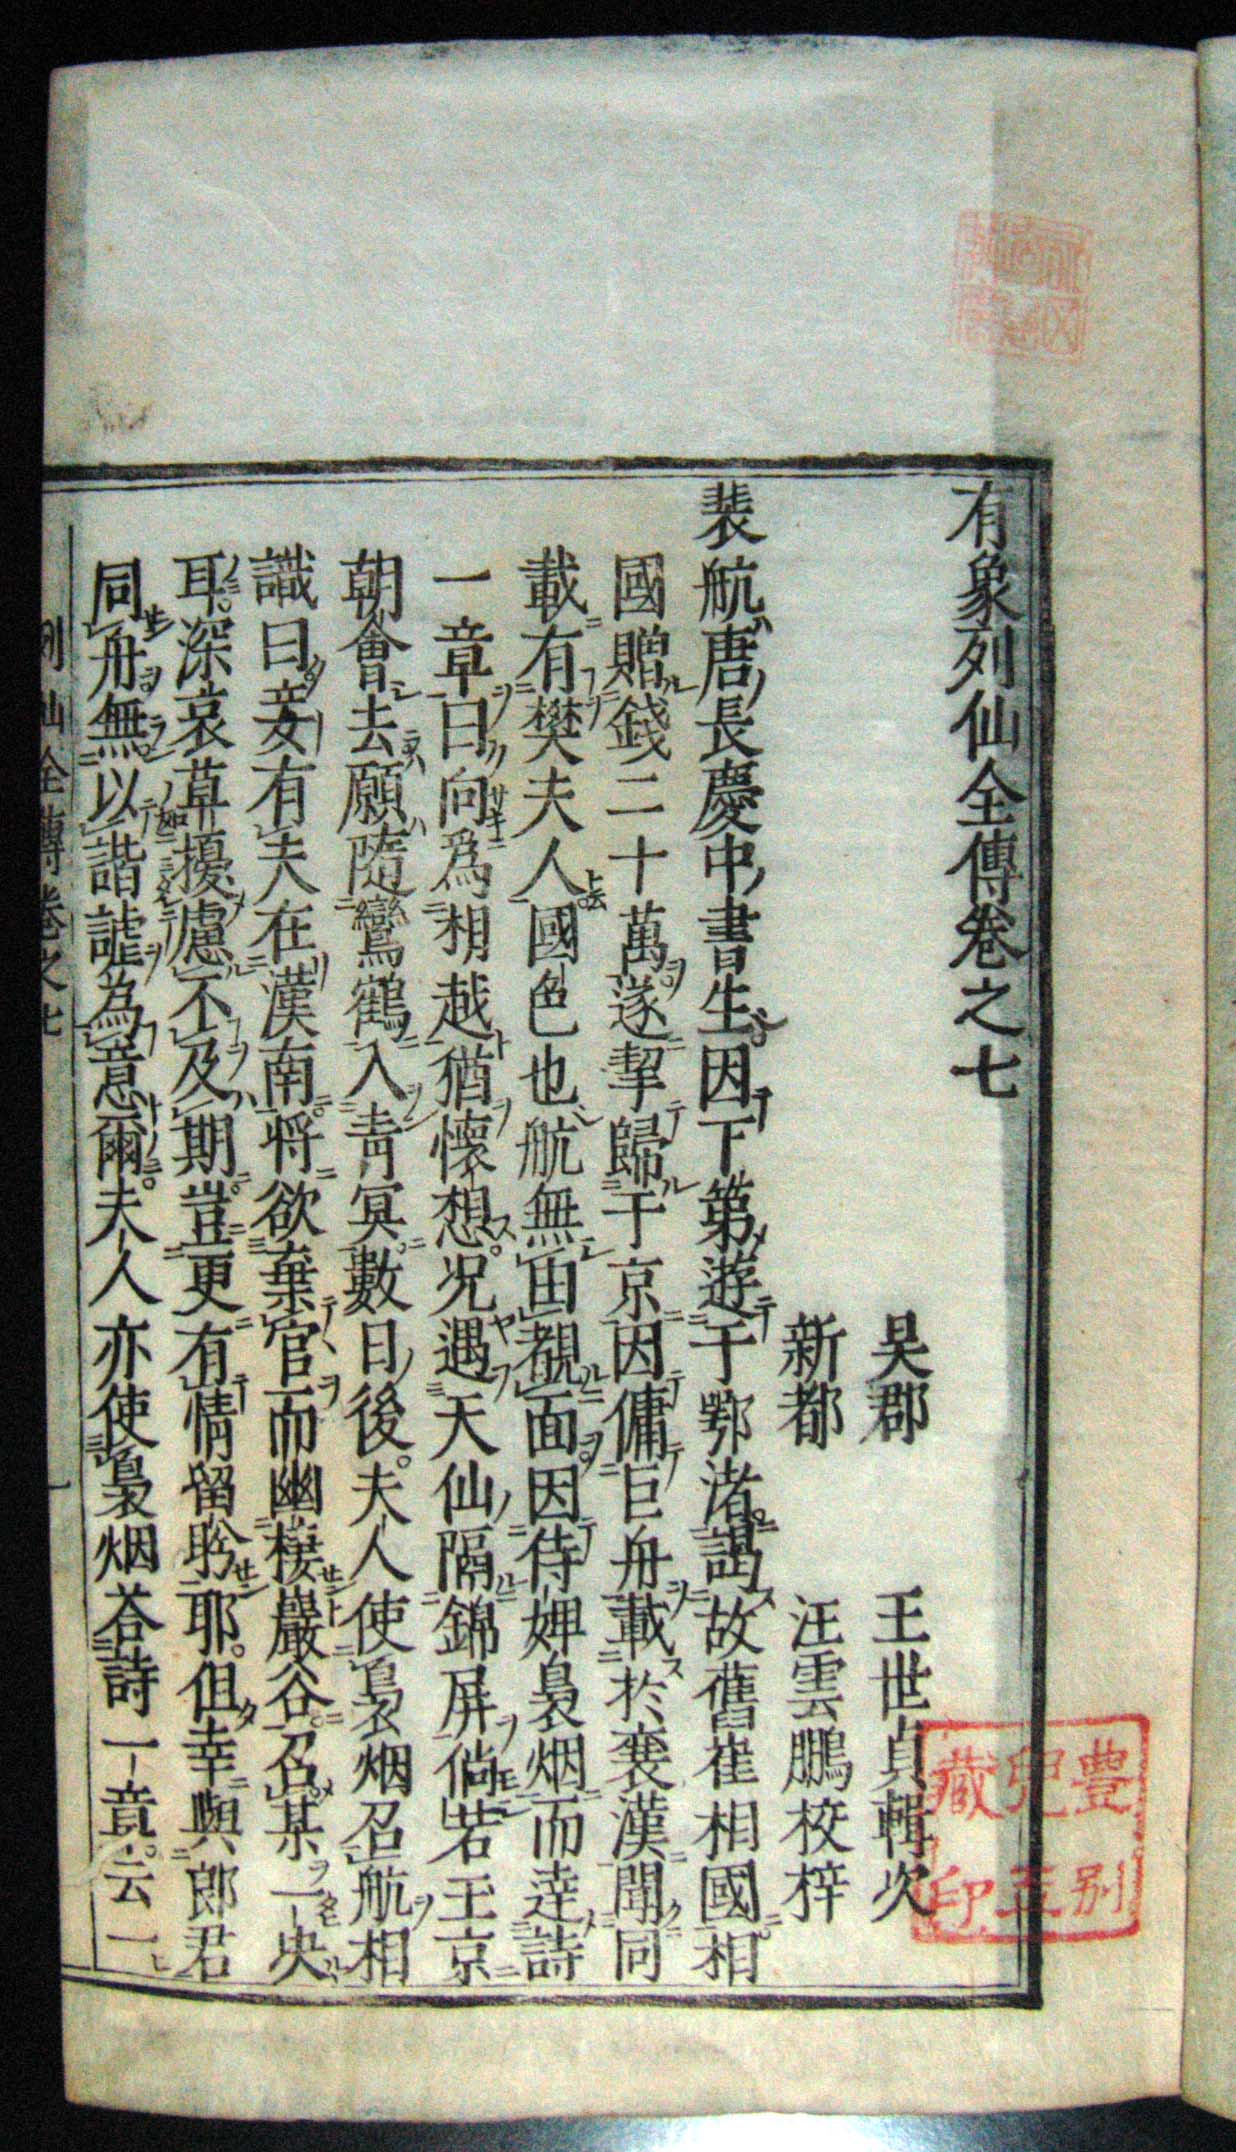 有象列仙全傳卷之七
吴郡 王世貞輯次
新都 汪雲鵬校梓
裴航唐長慶中書生因下第遊于鄂渚謁故舊崔相國相
國贈錢二十萬遂挈歸于京因傭巨舟載於襄漢聞同
載有樊夫人國色也航無由覩面因侍婢裊烟而達詩
一章曰向為相越猶懷想况遇天仙隔錦屏倘若王京
朝會去願隨鸞鶴入青冥數日後夫人使裊烟召航相
識曰妾有夫在漢南將欲棄官而幽棲巖谷召某一央
耳深哀草擾慮不及期豈更有情留盻耶但幸與郎君
同舟無以諧謔為意爾夫人亦使裊烟荅詩一章云一
列仙全傳卷之七
一
豊
别
藏
印